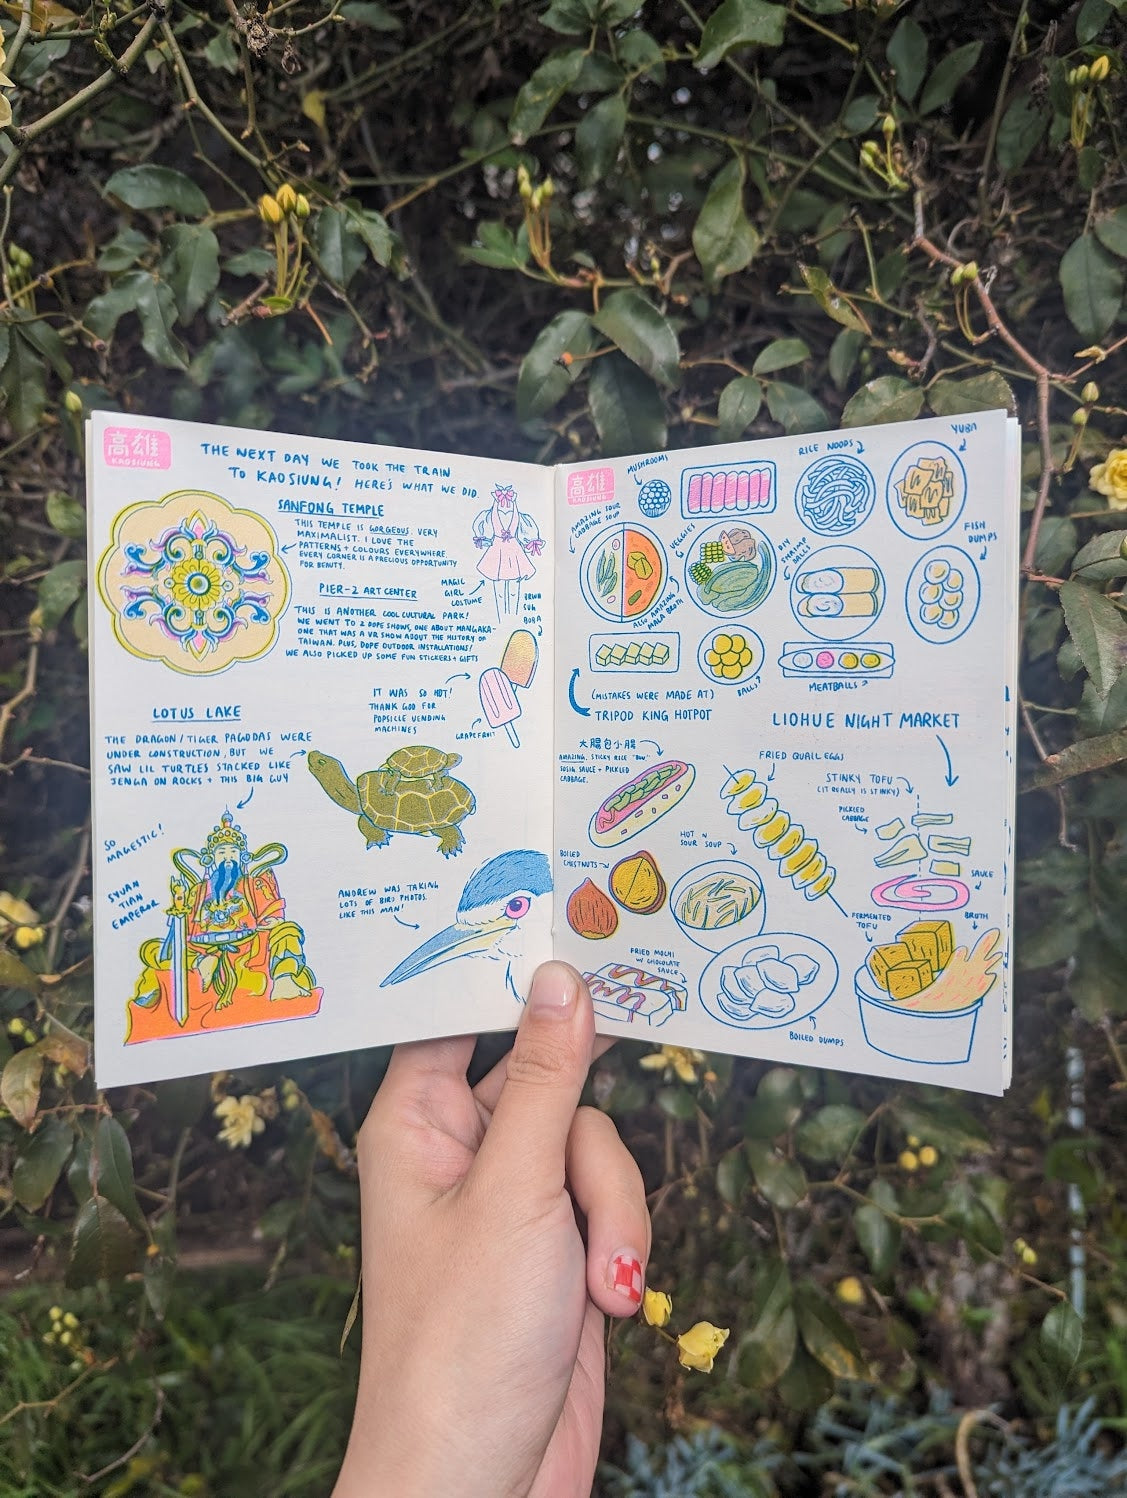 高雄
KAOSIUNG
THE NEXT DAY WE TOOK THE TRAIN
TO KAOSIUNG! HERE'S WHAT WE DID.
SANFONG TEMPLE
THIS TEMPLE IS GORGEOUS. VERY
MAXIMALIST. I LOVE THE
PATTERNS + COLOURS EVERYWHERE.
EVERY CORNER IS A PRECIOUS OPPORTUNITY
FOR BEAUTY.
PIER-2 ART CENTER
THIS IS ANOTHER COOL CULTURAL PARK!
WE WENT TO 2 DOPE SHOWS, ONE ABOUT MANGAKA-
ONE THAT WAS A VR SHOW ABOUT THE HISTORY OF
TAIWAN. PLUS, DOPE OUTDOOR INSTALLATIONS!
WE ALSO PICKED UP SOME FUN STICKERS + GIFTS
MAGIC
GIRL
COSTUME
BRWN
SUG
BOBA
IT WAS SO HOT!
THANK GOD FOR
POPSICLE VENDING
MACHINES
GRAPEFRUIT
LOTUS LAKE
THE DRAGON/TIGER PAGODAS WERE
UNDER CONSTRUCTION, BUT WE
SAW LIL TURTLES STACKED LIKE
JENGA ON ROCKS + THIS BIG GUY
SO
MAGESTIC!
SYUAN
TIAN
EMPEROR
ANDREW WAS TAKING
LOTS OF BIRD PHOTOS.
LIKE THIS MAN!
高雄
KAOSIUNG
MUSHROOMS
RICE NOODS
YUBA
AMAZING SOUR
CABBAGE SOUP
VEGGIES
DIY
SHRIMP
BALLS
FISH
DUMPS
ALSO AMAZING
MALA BROTH
BALLS?
MEATBALLS
(MISTAKES WERE MADE AT)
TRIPOD KING HOTPOT
LIOHUE NIGHT MARKET
大腸包小腸
AMAZING. STICKY RICE "BUN"
SOSIG SAUCE + PICKLED
CABBAGE.
FRIED QUAIL EGGS
STINKY TOFU
(IT REALLY IS STINKY)
PICKLED
CABBAGE
HOT N
SOUR SOUP
BOILED
CHESTNUTS
SAUCE
FERMENTED
TOFU
BROTH
FRIED MOCHI
W/ CHOCOLATE
SAUCE
BOILED DUMPS